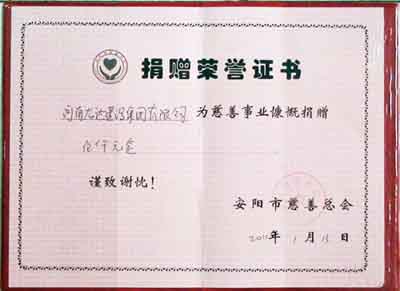 捐赠荣誉证书
河南龙达建设集团有限公司 为慈善事业慷慨捐赠
伍仟元整
谨致谢忱！
安阳市慈善总会
年1月15日